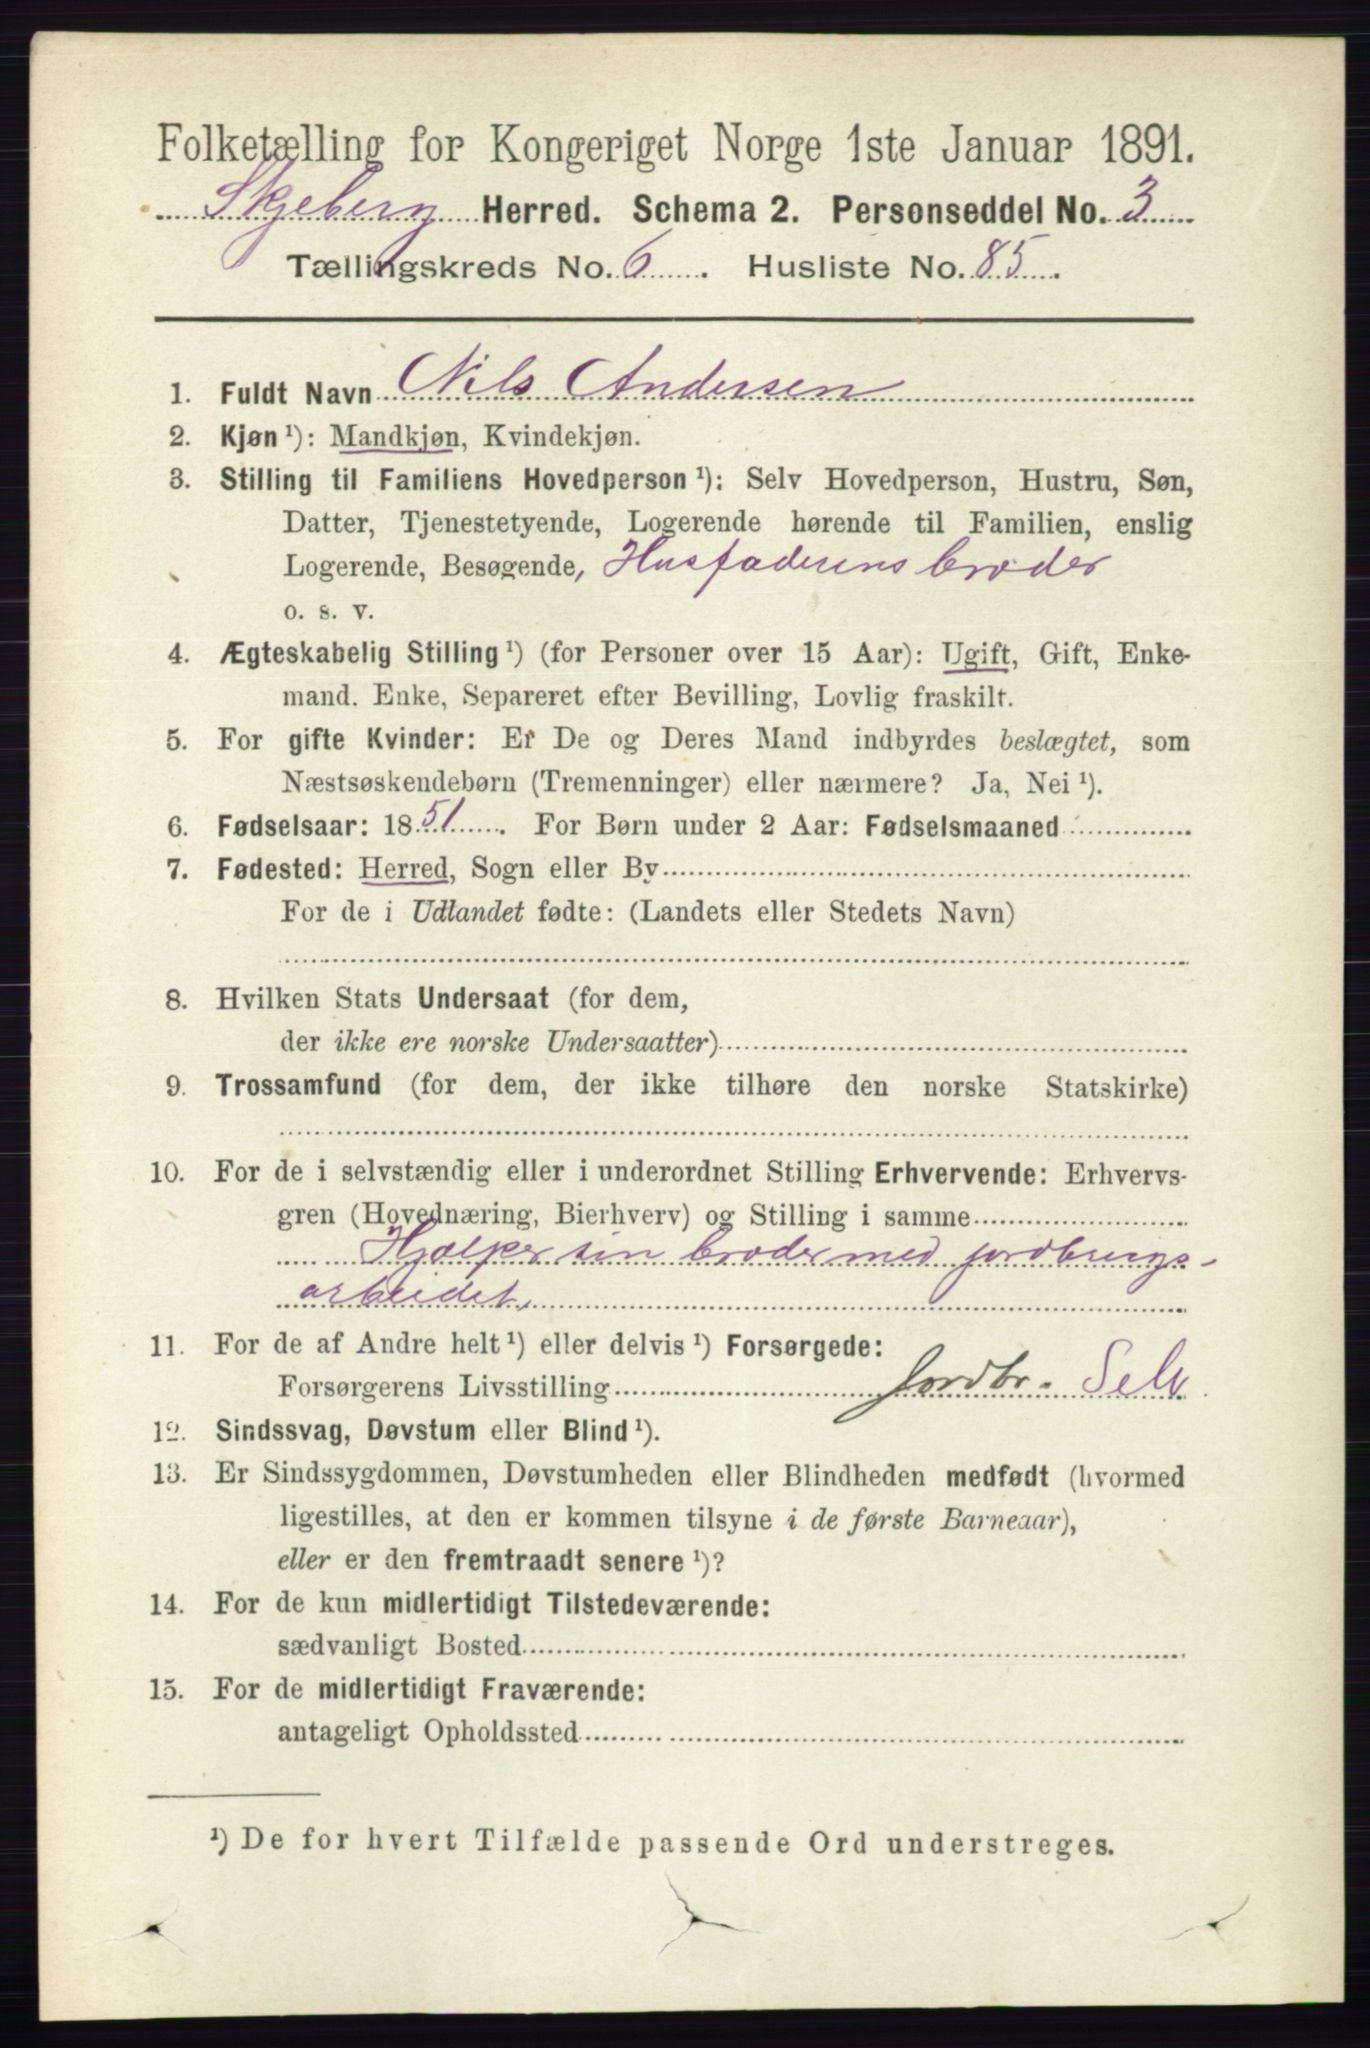 Folketælling for Kongeriget Norge 1ste Januar 1891.
Skjeberg Herred. Schema 2. Personseddel No. 3
Tællingskreds No. 6 . Husliste No. 85 .
1. Fuldt Navn Nils Andersen
2. Kjøn ¹): Mandkjøn, Kvindekjøn.
3. Stilling til Familiens Hovedperson ¹): Selv Hovedperson, Hustru, Søn,
Datter, Tjenestetyende, Logerende hørende til Familien, enslig
Logerende, Besøgende, Husfaderens broder
o. s. v.
4. Ægteskabelig Stilling ¹) (for Personer over 15 Aar): Ugift, Gift, Enke-
mand. Enke, Separeret efter Bevilling, Lovlig fraskilt.
5. For gifte Kvinder: Er De og Deres Mand indbyrdes beslægtet, som
Næstsøskendebørn (Tremenninger) eller nærmere? Ja, Nei ¹).
6. Fødselsaar: 1851 . For Børn under 2 Aar: Fødselsmaaned
7. Fødested: Herred, Sogn eller By
For de i Udlandet fødte: (Landets eller Stedets Navn)
8. Hvilken Stats Undersaat (for dem,
der ikke ere norske Undersaatter)
9. Trossamfund (for dem, der ikke tilhøre den norske Statskirke)
10. For de i selvstændig eller i underordnet Stilling Erhvervende: Erhvervs-
gren (Hovednæring, Bierhverv) og Stilling i samme
Hjælper sin broder med jordbrugs-
arbeidet,
11. For de af Andre helt ¹) eller delvis ¹) Forsørgede:
Forsørgerens Livsstilling Jordbr. Selv
12. Sindssvag, Døvstum eller Blind ¹).
13. Er Sindssygdommen, Døvstumheden eller Blindheden medfødt (hvormed
ligestilles, at den er kommen tilsyne i de første Barneaar),
eller er den fremtraadt senere ¹)?
14. For de kun midlertidigt Tilstedeværende:
sædvanligt Bosted
15. For de midlertidigt Fraværende:
antageligt Opholdssted
¹) De for hvert Tilfælde passende Ord understreges.